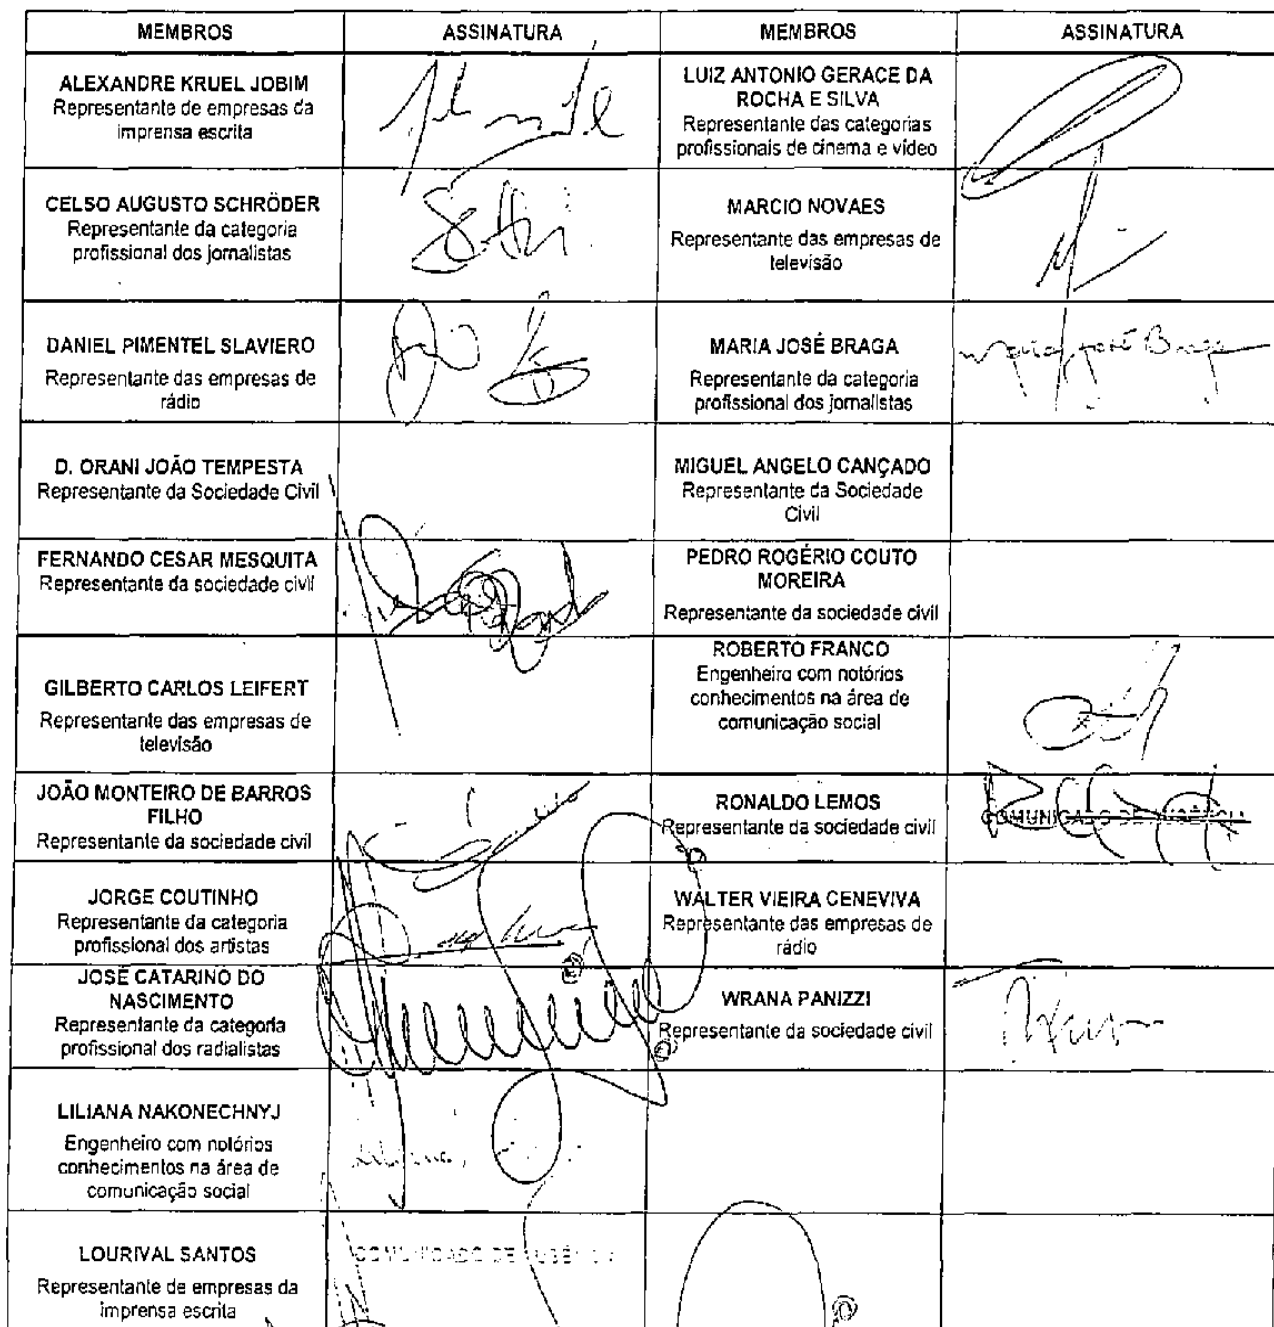 MEMBROS ASSINATURA MEMBROS ASSINATURA
ALEXANDRE KRUEL JOBIM
Representante de empresas da
imprensa escrita
LUIZ ANTONIO GERACE DA
ROCHA E SILVA
Representante das categorias
profissionais de cinema e vídeo
CELSO AUGUSTO SCHRÖDER
Representante da categoria
profissional dos jornalistas
MARCIO NOVAES
Representante das empresas de
televisão
DANIEL PIMENTEL SLAVIERO
Representante das empresas de
rádio
MARIA JOSÉ BRAGA
Representante da categoria
profissional dos jornalistas
Maria José Braga
D. ORANI JOÃO TEMPESTA
Representante da Sociedade Civil
MIGUEL ANGELO CANÇADO
Representante da Sociedade
Civil
FERNANDO CESAR MESQUITA
Representante da sociedade civil
PEDRO ROGÉRIO COUTO
MOREIRA
Representante da sociedade civil
GILBERTO CARLOS LEIFERT
Representante das empresas de
televisão
ROBERTO FRANCO
Engenheiro com notórios
conhecimentos na área de
comunicação social
JOÃO MONTEIRO DE BARROS
FILHO
Representante da sociedade civil
RONALDO LEMOS
Representante da sociedade civil
COMUNICADO DE AUSÊNCIA
JORGE COUTINHO
Representante da categoria
profissional dos artistas
WALTER VIEIRA CENEVIVA
Representante das empresas de
rádio
JOSÉ CATARINO DO
NASCIMENTO
Representante da categoria
profissional dos radialistas
WRANA PANIZZI
Representante da sociedade civil
LILIANA NAKONECHNYJ
Engenheiro com notórios
conhecimentos na área de
comunicação social
LOURIVAL SANTOS
Representante de empresas da
imprensa escrita
COMUNICADO DE AUSÊNCIA